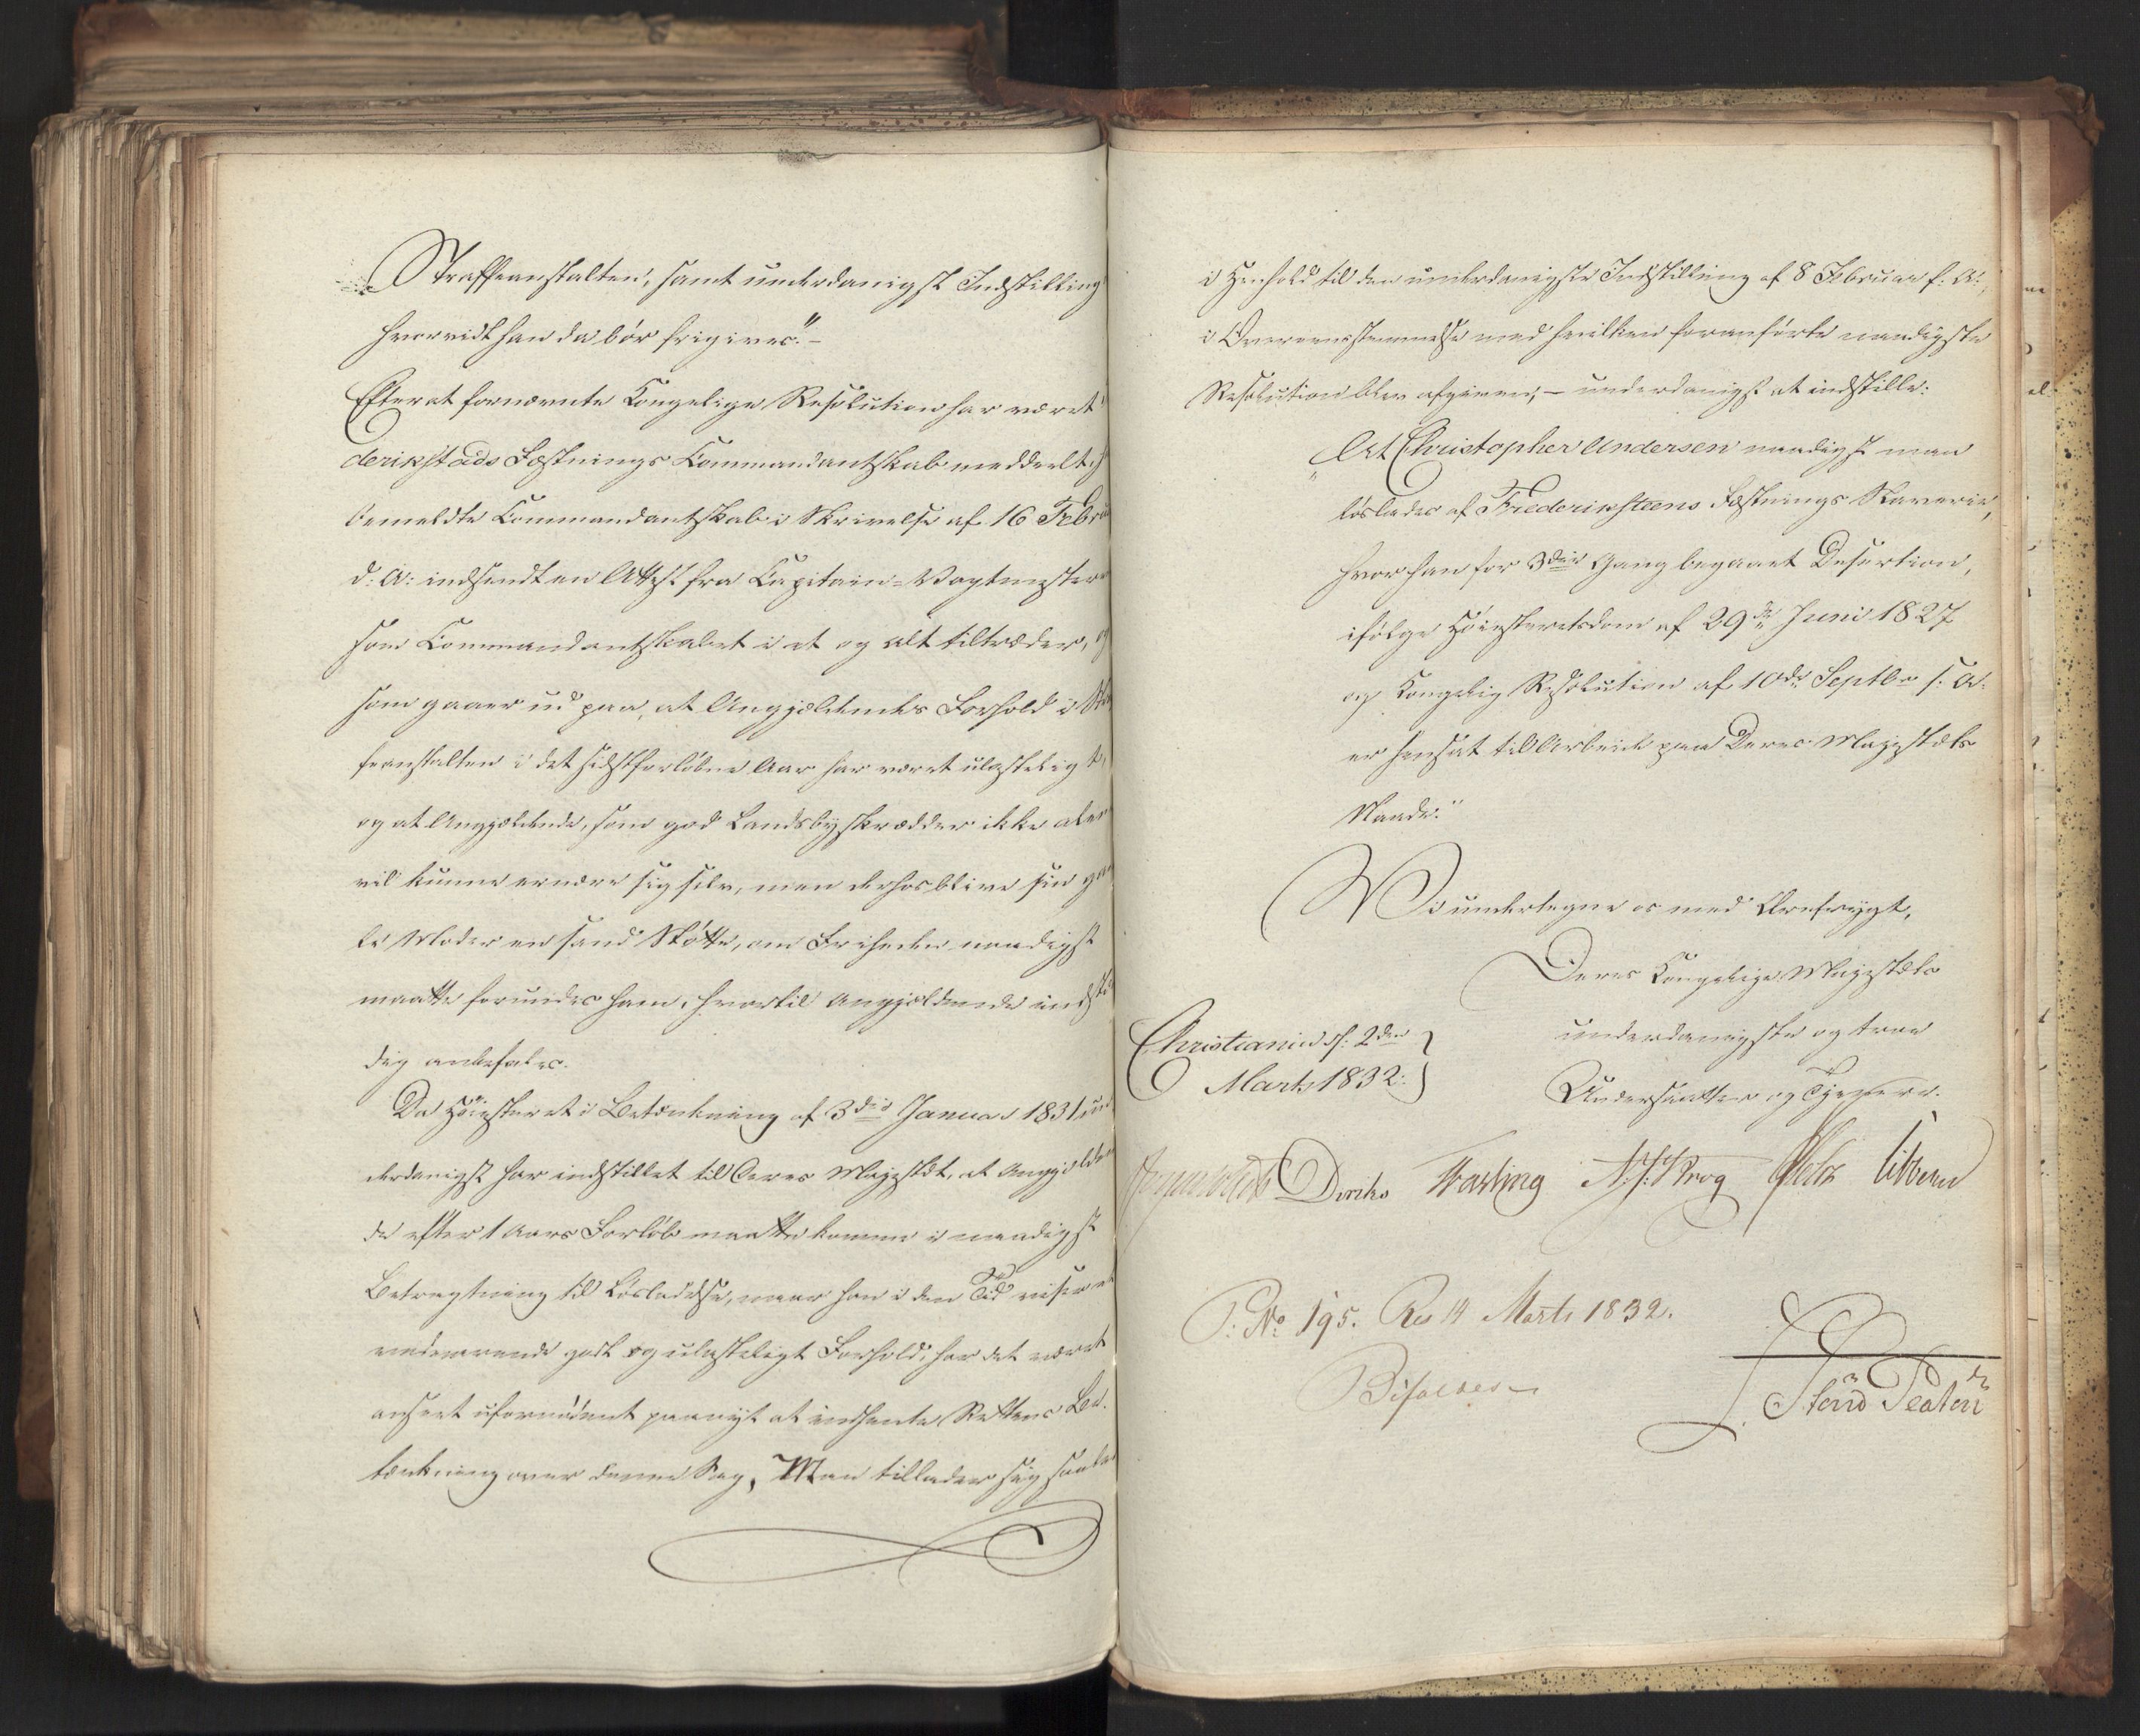 Straffeanstalten, samt underdanigst Indstilling
hvorvidt han da bør frigives."–
Efterat fornævnte Kongelige Resolution har været
derikstads Fæstnings Commandantskab meddeelt,
bemeldte Commandantskab i Skrivelse af 16 Febru
d: A: indsendt en Attest fra Capitain-Vagtmester
som Commandantskabet i et og alt tiltræder, og
som gaaer ud paa, at Angjældendes Forhold i Straf
feanstalten i det sidstforløbne Aar har været ulasteligt,
og at Angjældende, som god Landsbyskrædder ikke alene
vil kunne ernære sig selv, men derhos blive sin gam
le Moder en sand Støtte, om Friheden naadigst
maatte forundes ham, hvortil Angjældende indstæn
dig anbefales.
Da Høiesteret i Betænkning af 3die Januar 1831 un
derdanigst har indstillet til Deres Majestæt, at Angjælden
de efter 1 Aars Forløb maatte komme i naadigst
Betragtning til Løsladelse, naar han i den Tid viser et
vedvarende godt og ulasteligt Forhold, har det været
anseet ufornødent paanyt at indhente Rettens Be-
tænkning over denne Sag. Man tillader sig saale
i Henhold til den underdanigste Indstilling af 8 Februar f: A:,
i Overeensstemmelse med hvilken foranførte naadigste
Resolution blev afgiven, – underdanigst at indstille:
"At Christopher Andersen naadigst maa
løslades af Frederiksteens Fæstnings Slaverie,
hvor han for 3die Gang begaaet Desertion,
ifølge Høiesteretsdom af 29de Juni 1827
og Kongelig Resolution af 10de Septbr s: A:
er hensat til Arbeide paa Deres Majestæts
Naade."
Vi undertegne os med Ærefrygt,
Deres Kongelige Majestæts
Christiania d: 2den
underdanigste og troe
Marts 1832.
Undersaatter og Tjenere.
Diriks Fasting N. J. Krog Holst Sibbern
P: No 195. Res 14 Marts 1832.
Bifaldes